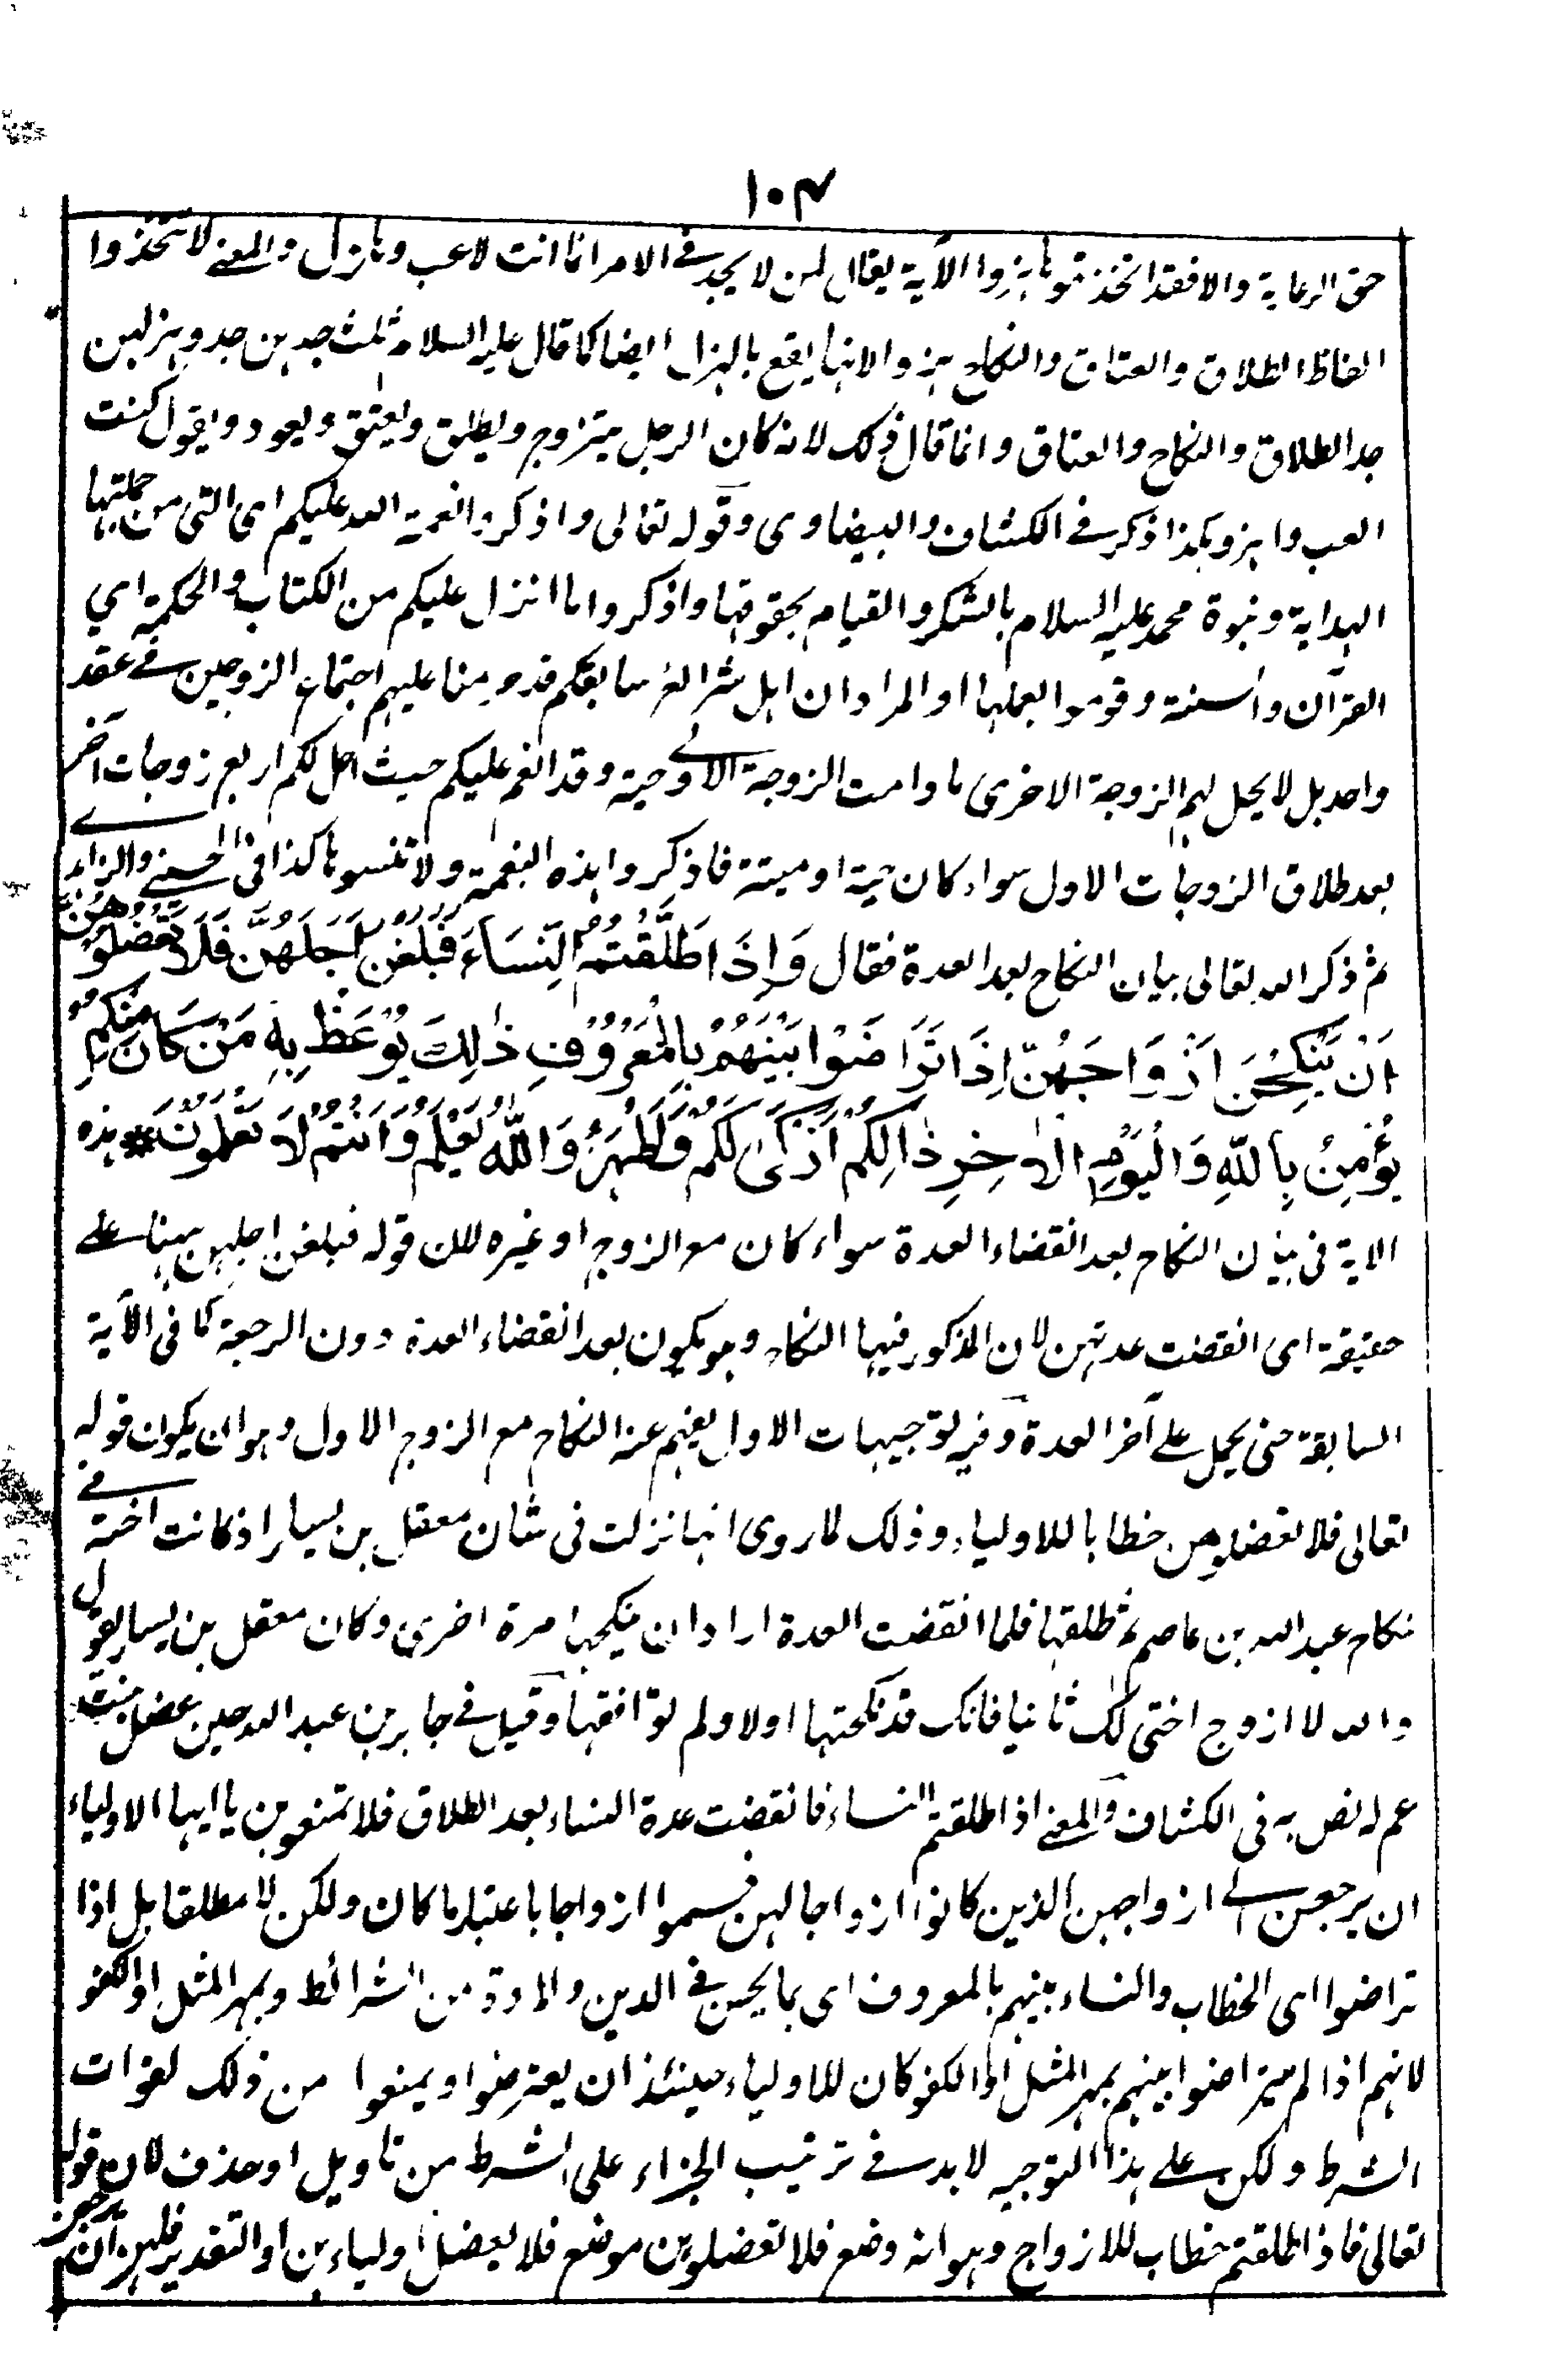 ١٠٤
حق الرعاية والا فقد اتخذتموها هزوا الآية يقال لمن لا يجد فى الامر انما انت لاعب وهازل والمعنى لا تتخذوا
الفاظ الطلاق والعتاق والنكاح هزوا لانها يقع بالهزل ايضا كما قال عليه السلام ثلث جدهن جد وهزلهن
جد الطلاق والنكاح والعتاق وانما قال ذلك لانه كان الرجل يتزوج ويطلق ويعتق ويعود ويقول كنت
العب واهزو هكذا ذكر فى الكشاف والبيضاوى وقوله تعالى واذكروا نعمة الله عليكم اى التى من جملتها
الهداية ونبوة محمد عليه السلام بالشكر والقيام بحقوقها واذكروا ما انزل عليكم من الكتاب والحكمة اي
القرآن والسنة وقوموا بعملها او المراد ان اهل شرائع سابقكم قد حرمنا عليهم اجتماع الزوجين فى عقد
واحد بل لا يحل لهم الزوجة الاخرى ما دامت الزوجة الاولى حية وقد انعم عليكم حيث احل لكم اربع زوجات اخرى
بعد طلاق الزوجات الاول سواء كان حية او ميتة فاذكروا هذه النعمة ولا تنسوها كذا فى الحسينى والزاهدى
ثم ذكر الله تعالى بيان النكاح بعد العدة فقال وَاِذَا طَلَّقْتُمُ النِّسَاءَ فَبَلَغْنَ اَجَلَهُنَّ فَلَا تَعْضُلُوْهُنَّ
اَنْ يَّنْكِحْنَ اَزْوَاجَهُنَّ اِذَا تَرَاضَوْا بَيْنَهُمْ بِالْمَعْرُوْفِ ذٰلِكَ يُوْعَظُ بِهٖ مَنْ كَانَ مِنْكُمْ
يُؤْمِنُ بِاللّٰهِ وَالْيَوْمِ الْاٰخِرِ ذٰلِكُمْ اَزْكٰى لَكُمْ وَاَطْهَرُ وَاللّٰهُ يَعْلَمُ وَاَنْتُمْ لَا تَعْلَمُوْنَ * هذه
الاية فى بيان النكاح بعد انقضاء العدة سواء كان مع الزوج او غيره لان قوله فبلغن اجلهن ههنا على
حقيقة اى انقضت عدتهن لان المذكور فيها النكاح وهو يكون بعد انقضاء العدة دون الرجعة كما فى الآية
السابقة حتى يحمل على آخر العدة وفيه توجيهات الاول يفهم عنه النكاح مع الزوج الاول وهو ان يكون قوله
تعالى فلا تعضلوهن خطابا للاولياء وذلك لما روى انها نزلت فى شان معقل بن يسار اذ كانت اخته فى
نكاح عبد الله بن عاصم ثم طلقها فلما انقضت العدة اراد ان ينكحها مرة اخرى وكان معقل بن يسار يقول
والله لا ازوج اختى لك ثانيا فانك قد نكحتها اولا ولم توافقها وقيل فى جابر بن عبد الله حين عضل بنت
عم له نص به فى الكشاف والمعنى اذا طلقتم النساء فانقضت عدة النساء بعد الطلاق فلا تمنعوهن يا ايها الاولياء
ان يرجعن الى ازواجهن الذين كانوا ازواجا لهن فسموا ازواجا باعتبار ما كان ولكن لا مطلقا بل اذا
تراضوا اى الخطاب والنساء بينهم بالمعروف اى بما يحسن فى الدين والمروة من الشرائط وبمهر المثل او الكفو
لانهم اذا لم يتراضوا بينهم بمهر المثل او الكفو كان للاولياء حينئذ ان يعترضوا ويمنعوا من ذلك لفوات
الشرط ولكن على هذا التوجيه لا بد فى ترتيب الجزاء على الشرط من تاويل او حذف لان قوله
تعالى فاذا طلقتم خطاب للازواج وهو انه وضع فلا تعضلوهن موضع فلا يعضل اولياءهن او التقدير فلهن ان يرجعن